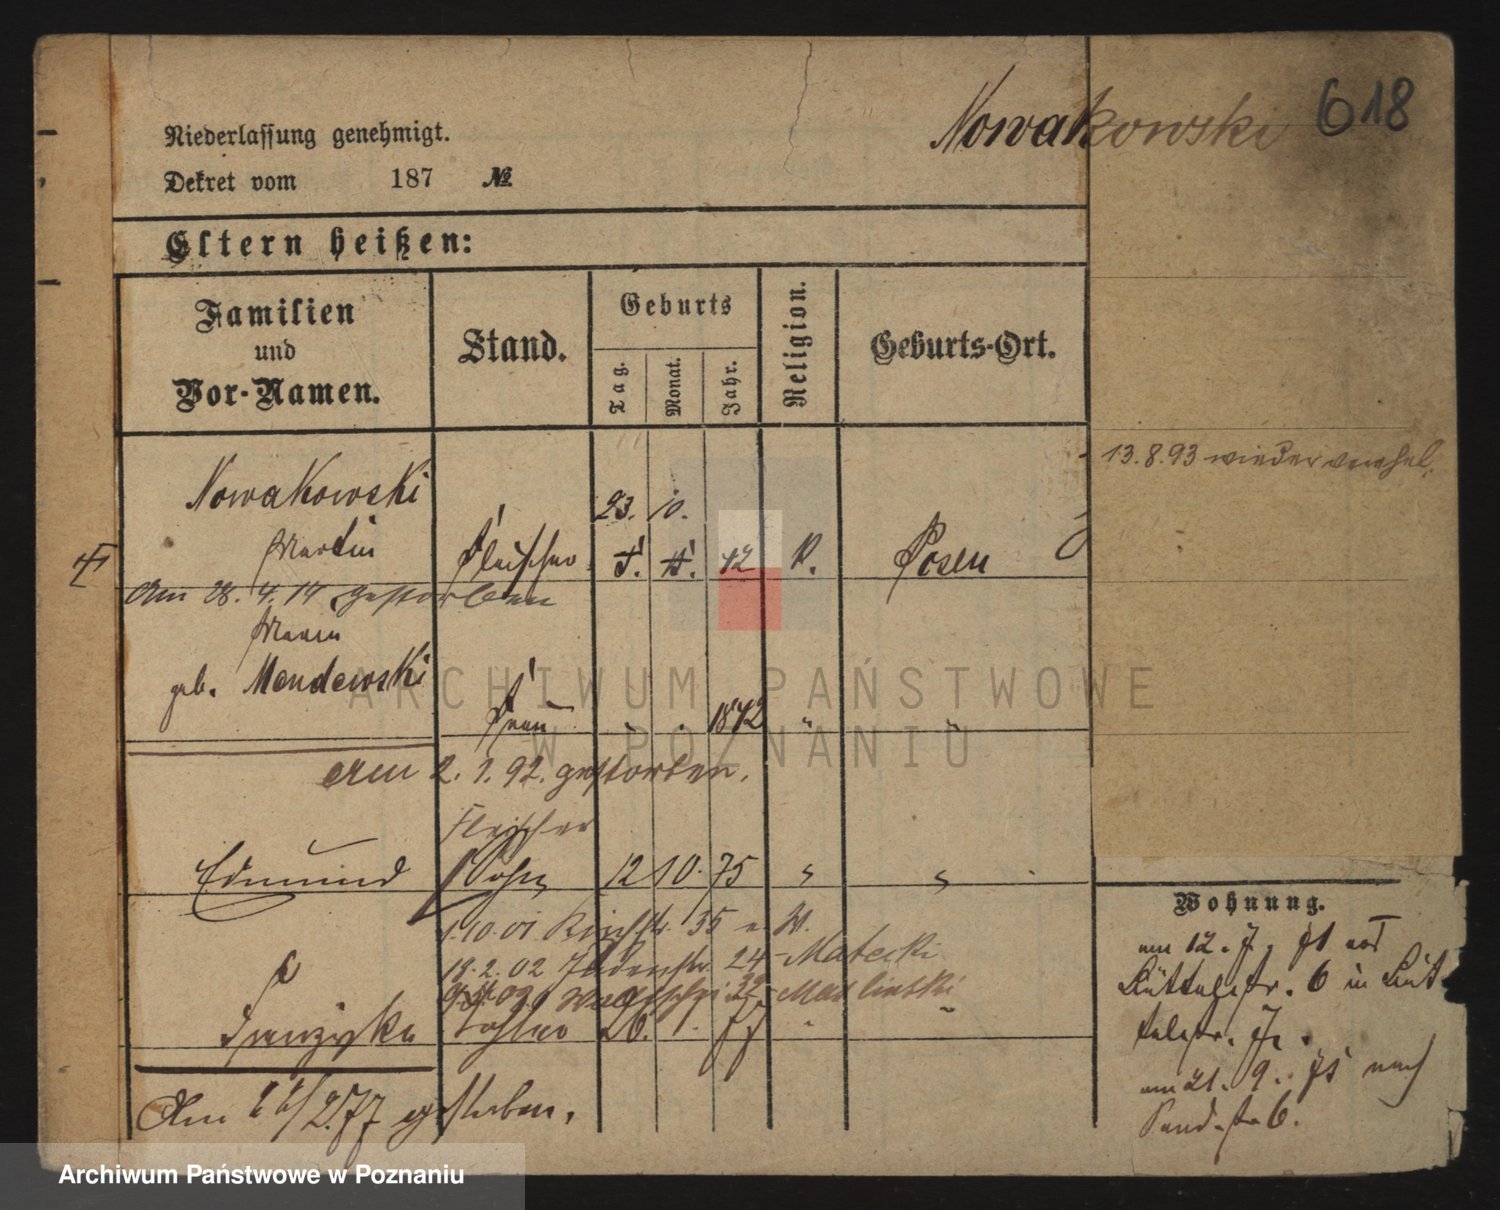 Nowakowski 618
Niederlassung genehmigt.
Dekret vom 187 №
Eltern heißen:
Familien und Vor-Namen.
Stand.
Geburts
Tag.
Monat.
Jahr.
Religion.
Geburts-Ort.
13.8.93 wieder verehel.
Nowakowski
23. 10.
Martin Fleischer 42 K. Posen
Am 28. 4. 14 gestorben
Maria
geb. Mendewski
Frau 1842 "
am 2. 1. 92. gestorben.
Fleischer
Edmund Sohn 12 10. 75
1.10.01 35
18.2.02 Judenstr. 24 Matecki
Franziska Tochter 26. 1. 77
Am 2.77 gestorben.
Wohnung.
am 12. 7. 71 aus
Büttelstr. 6 in Büt-
telstr. 7.
am 21. 9. 75 nach
Sandstr 6.
ARCHIWUM PAŃSTWOWE
W POZNANIU
Archiwum Państwowe w Poznaniu